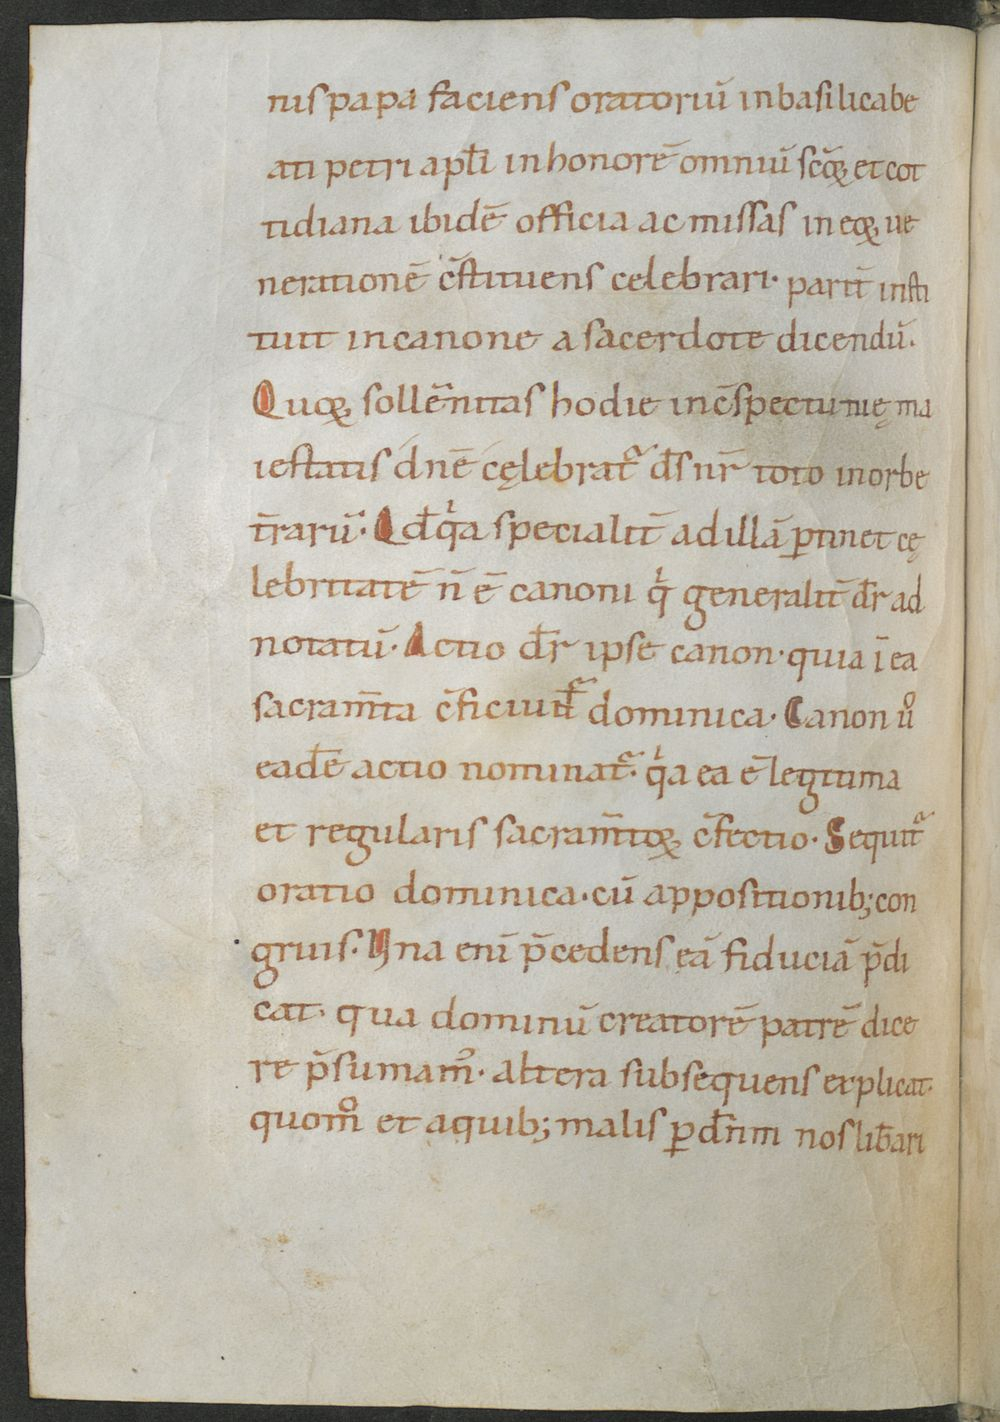 nis papa faciens oratoriū in basilica be
ati petri apl̄i in honorē omniū sc̄oꝝ, et cot
tidiana ibidē officia ac missas in eoꝝ ue
nerationē c̄stituens celebrari· parit̄ insti
tuit in canone a sacerdote dicendū·
Quoꝝ sollēnitas hodie in c̄spectu tuę ma
iestatis dn̄e cęlebratᷣ ds̄ nr̄ toto in orbe
t̄rarū· Qd̄ qͥa specialit̄ ad illā ꝑtinet cę
lebritatē n̄ ē canoni qͥ generalit̄ dr̄ ad
notatū· Actio dr̄ ipse canon· quia ī ea
sacram̄ta c̄ficiunt̄ᷣ dominica· Canon uͦ
ead̄e actio nominatᷣ· qͥa ea ē legitima
et regularis sacram̄toꝝ c̄fectio· Sequitᷣ
oratio dominica· cū appositionib; con
gruis· Una enī p̄cedens eā fiduciā p̄di
cat· qua dominū creatorē patrē dice
re p̄sumam᾿· altera subsequens explicat·
quom̊ et a quib; malis ꝑ dn̄m nos lib̄ari